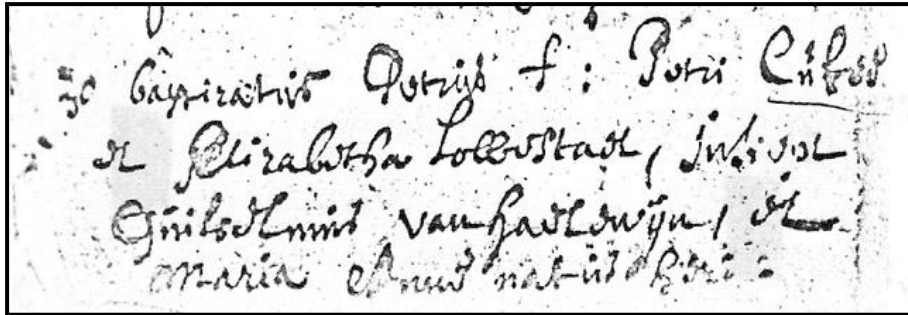 30 baptizatus Petrus f: Petri Lübes
et Elizabetha Lobbestael, susc: et
Guilielmus van haelewijn, et
Maria natus heri: